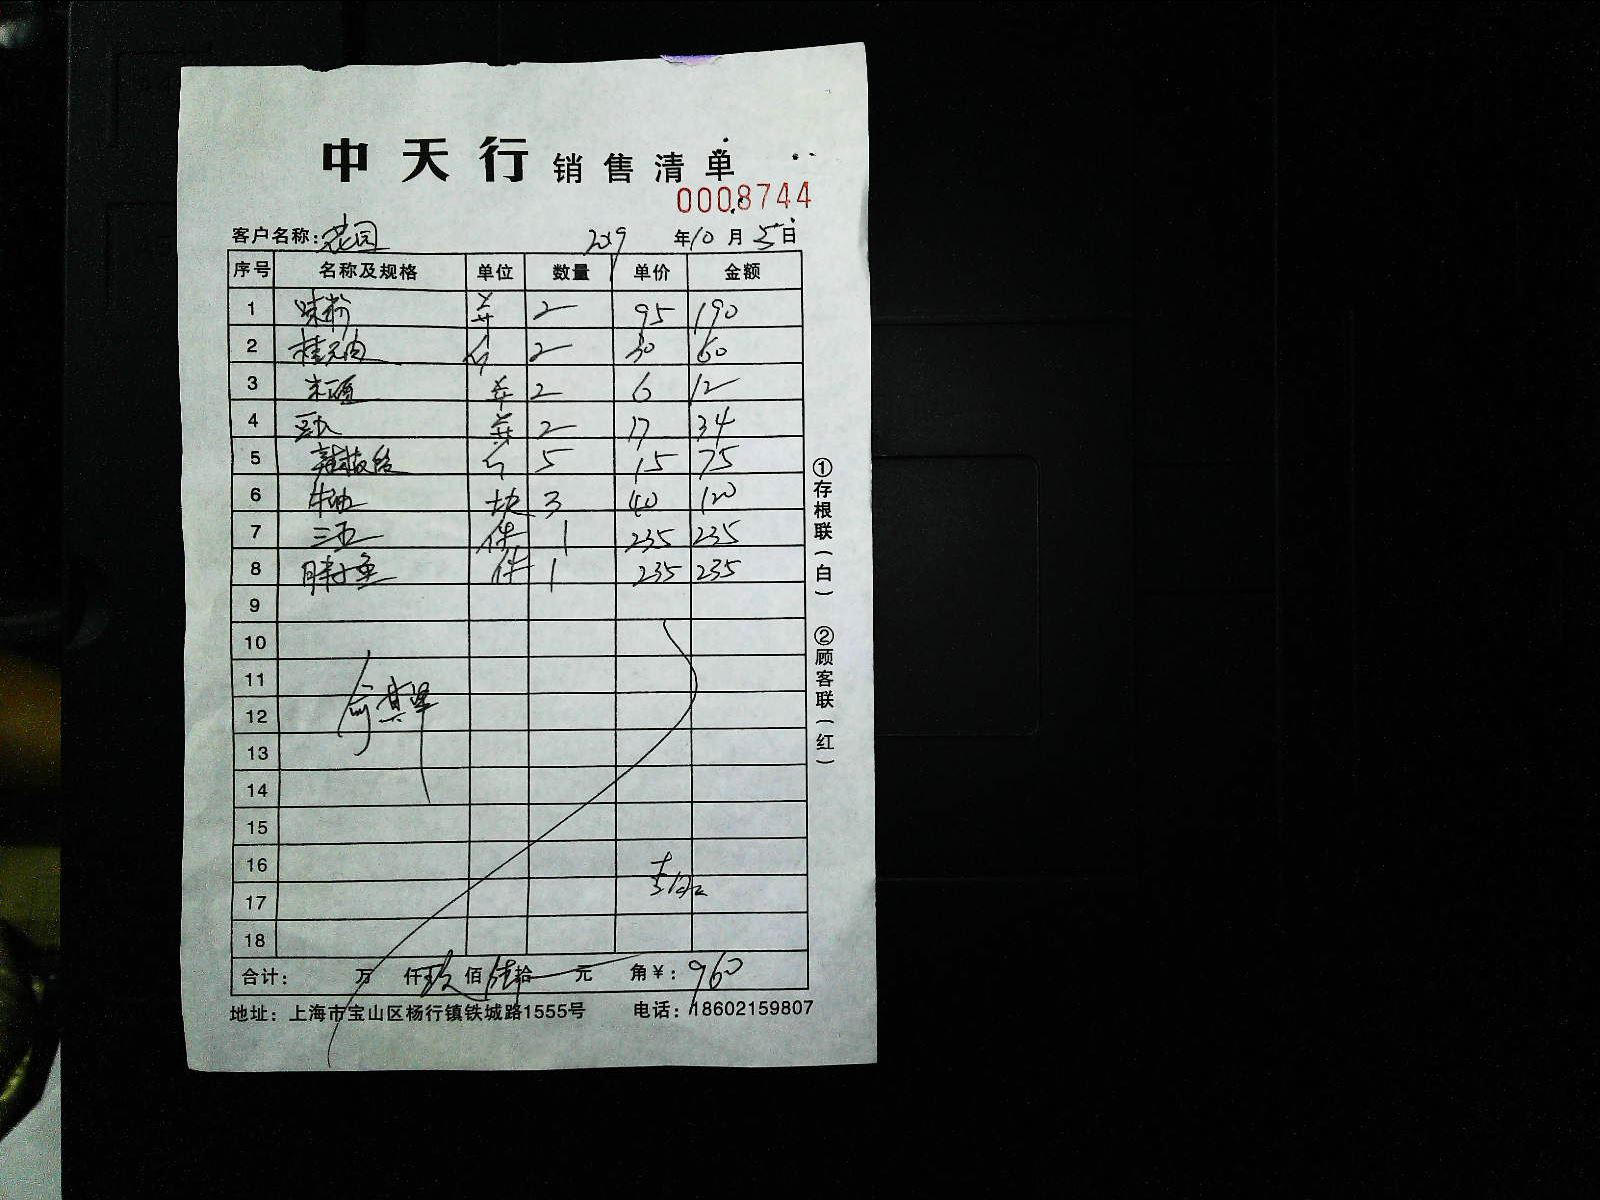 中天行 销售清单
0008744
客户名称: 花园 2019 年 10 月 5 日
序号 名称及规格 单位 数量 单价 金额
1 味粉 2 95 190
2 桂元肉 个 2 30 60
3 2 6 12
4 2 17 34
5 个 5 15 75
6 牛油 块 3 40 120
7 三五 件 1 235 235
8 件 1 235 235
9
10
11
12
13
14
15
16
17
18
合计: 万 仟 玖 佰 陆 拾 元 角 ¥: 960
地址: 上海市宝山区杨行镇铁城路1555号 电话: 18602159807
①存根联(白) ②顾客联(红)